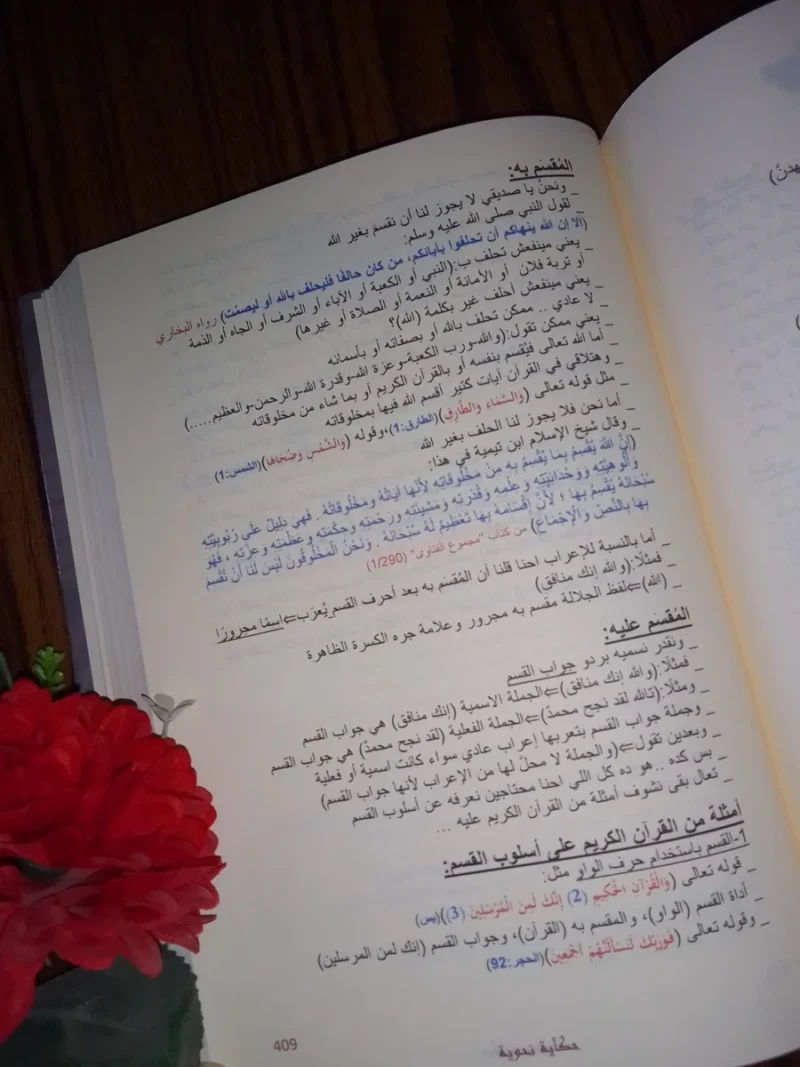 المُقسَم به:
_ ونحنُ يا صديقي لا يجوز لنا أن نقسمَ بغير الله
_ لقول النبي صلى الله عليه وسلم:
(ألا إن الله ينهاكم أن تحلفوا بآبائكم، من كان حالفًا فليحلف بالله أو ليصمُت) رواه البخاري
_ يعني مينفعش تحلف ب:(النبي أو الكعبة أو الآباء أو الشرف أو الجاه أو الذمة
أو تربة فلان أو الأمانة أو النعمة أو الصلاة أو غيرها)
_ يعني مينفعش أحلف غير بكلمة (الله)؟
_ لا عادي .. ممكن تحلف بالله أو بصفاته أو بأسمائه
_ يعني ممكن تقول:(والله-ورب الكعبة-وعزة الله-وقدرة الله-والرحمن-والعظيم.....)
_ أما الله تعالى فيُقسم بنفسه أو بالقرآن الكريم أو بما شاء من مخلوقاته
_ وهتلاقي في القرآن آيات كتير أقسم الله فيها بمخلوقاته
_ مثل قوله تعالى (وَالسَّمَاءِ وَالطَّارِقِ)(الطارق:1)،وقوله (وَالشَّمْسِ وَضُحَاهَا)(الشمس:1)
_ أما نحن فلا يجوز لنا الحلف بغير الله
_ وقال شيخ الإسلام ابن تيمية في هذا:
(إِنَّ اللهَ يُقْسِمُ بِمَا يُقْسِمُ بِهِ مِنْ مَخْلُوقَاتِهِ لِأَنَّهَا آيَاتُهُ وَمَخْلُوقَاتُهُ . فَهِيَ دَلِيلٌ عَلَى رُبُوبِيَّتِهِ
وَأُلُوهِيَّتِهِ وَوَحْدَانِيَّتِهِ وَعِلْمِهِ وَقُدْرَتِهِ وَمَشِيئَتِهِ وَرَحْمَتِهِ وَحِكْمَتِهِ وَعَظَمَتِهِ وَعِزَّتِهِ ، فَهُوَ
سُبْحَانَهُ يُقْسِمُ بِهَا ؛ لِأَنَّ إِقْسَامَهُ بِهَا تَعْظِيمٌ لَهُ سُبْحَانَهُ . وَنَحْنُ الْمَخْلُوقُونَ لَيْسَ لَنَا أَنْ نُقْسِمَ
بِهَا بِالنَّصِّ وَالْإِجْمَاعِ) من كتاب "مجموع الفتاوى" (1/290)
_ أما بالنسبة للإعراب احنا قلنا أن المُقسَم به بعد أحرف القسم يُعرَب⇐اسمًا مجرورًا
_ فمثلًا:(والله إنك منافق)
_ (الله)⇐لفظ الجلالة مقسم به مجرور وعلامة جره الكسرة الظاهرة
المُقسَم عليه:
_ ونقدر نسميه بردو جواب القسم
_ فمثلًا:(والله إنك منافق)⇐الجملة الاسمية (إنك منافق) هي جواب القسم
_ ومثلًا:(تالله لقد نجح محمدٌ)⇐الجملة الفعلية (لقد نجح محمدٌ) هي جواب القسم
_ وجملة جواب القسم بتعربها إعراب عادي سواء كانت اسمية أو فعلية
_ وبعدين تقول⇐(والجملة لا محلَّ لها من الإعراب لأنها جواب القسم)
_ بس كده .. هو ده كل اللي احنا محتاجين نعرفه عن أسلوب القسم
_ تعال بقى نشوف أمثلة من القرآن الكريم عليه ...
أمثلة من القرآن الكريم على أسلوب القسم:
1-القسم باستخدام حرف الواو مثل:
_ قوله تعالى (وَالْقُرْآنِ الْحَكِيمِ (2) إِنَّكَ لَمِنَ الْمُرْسَلِينَ (3))(يس)
_ أداة القسم (الواو)، والمقسم به (القرآن)، وجواب القسم (إنك لمن المرسلين)
_ وقوله تعالى (فَوَرَبِّكَ لَنَسْأَلَنَّهُمْ أَجْمَعِينَ)(الحجر:92)
حكاية نحوية
409